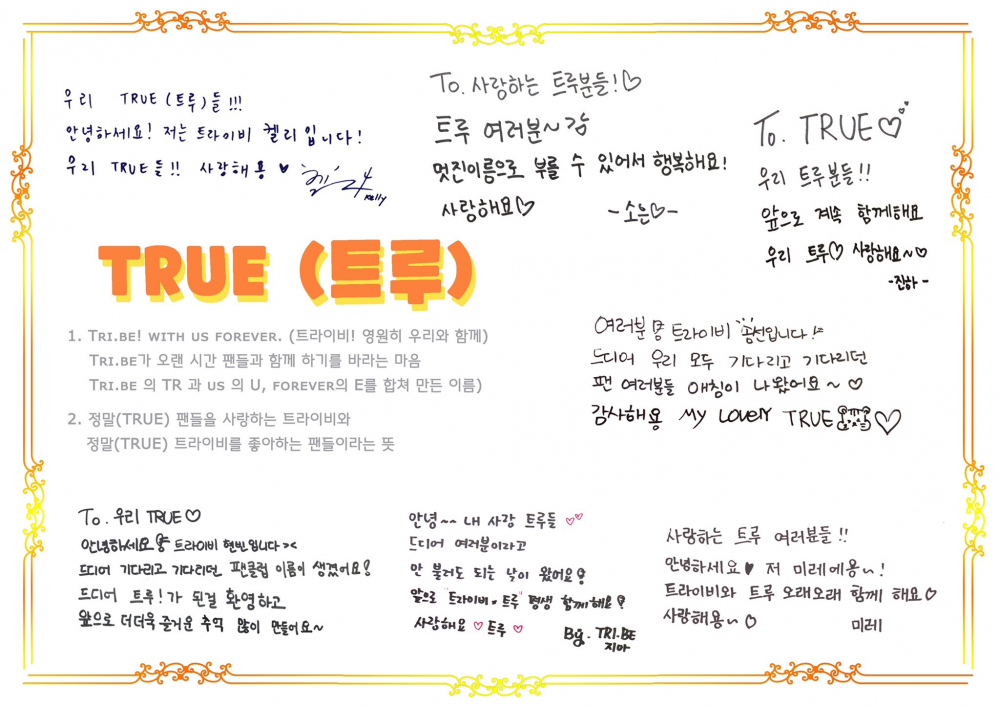 우리 TRUE (트루)들!!!
안녕하세요! 저는 트라이비 켈리입니다!
우리 TRUE들!! 사랑해용 ♥
Kelly
To. 사랑하는 트루분들!♡
트루 여러분~
멋진이름으로 부를 수 있어서 행복해요!
사랑해요♡ -소은♡-
To. TRUE♡
우리 트루분들!!
앞으로 계속 함께해요
우리 트루♡ 사랑해요~♡
-진하-
TRUE (트루)
1. TRI.BE! WITH US FOREVER. (트라이비! 영원히 우리와 함께)
TRI.BE가 오랜 시간 팬들과 함께 하기를 바라는 마음
TRI.BE 의 TR 과 US 의 U, FOREVER의 E를 합쳐 만든 이름)
2. 정말(TRUE) 팬들을 사랑하는 트라이비와
정말(TRUE) 트라이비를 좋아하는 팬들이라는 뜻
여러분 트라이비 송선입니다!
드디어 우리 모두 기다리고 기다리던
팬 여러분들 애칭이 나왔어요~ ♡
감사해용 MY LOVELY TRUE ♡
To. 우리 TRUE♡
안녕하세요 트라이비 현빈입니다><
드디어 기다리고 기다리던 팬클럽 이름이 생겼어요!
드디어 트루!가 된걸 환영하고
앞으로 더더욱 즐거운 추억 많이 만들어요~
안녕~~ 내 사랑 트루들 ♡♡
드디어 여러분이라고
안 불러도 되는 날이 왔어요!
앞으로 "트라이비×트루" 평생 함께해요!
사랑해요 ♡트루 ♡
By. TRI.BE
지아
사랑하는 트루 여러분들!!
안녕하세요♥ 저 미레예용~!
트라이비와 트루 오래오래 함께 해요♡
사랑해용~♡
미레